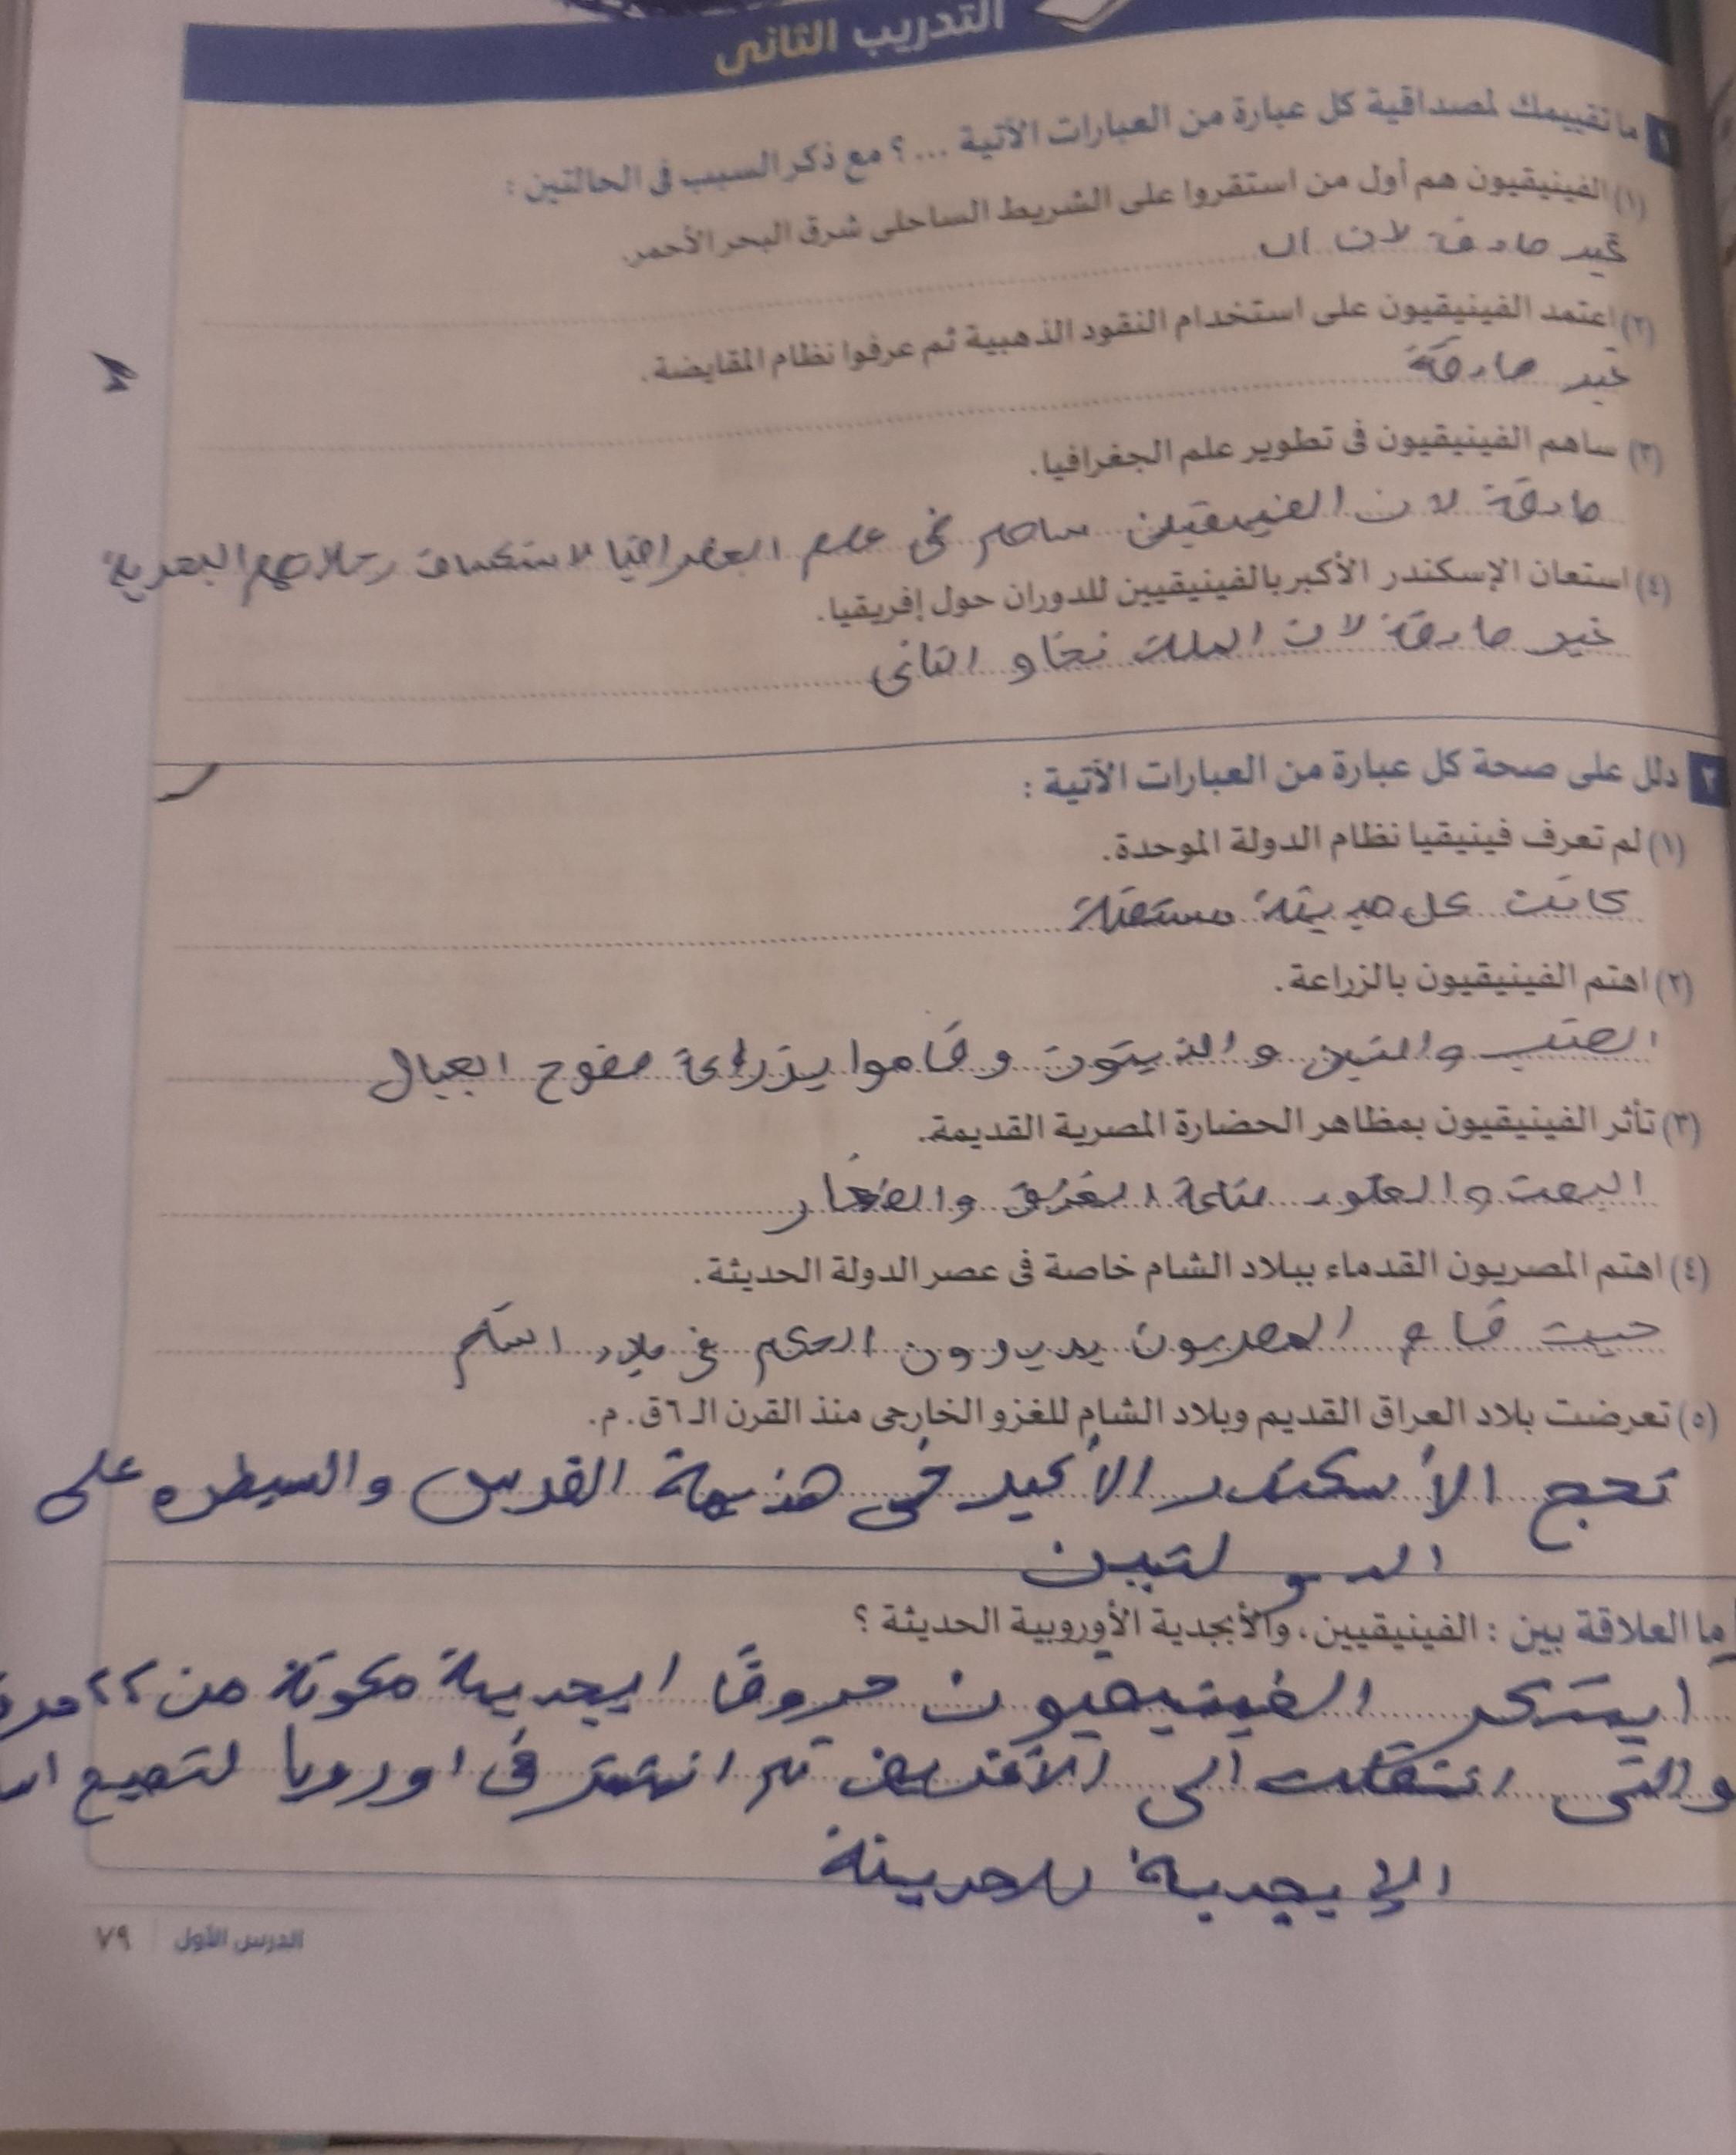 التدريب الثانى
١ ما تقييمك لمصداقية كل عبارة من العبارات الآتية ...؟ مع ذكر السبب فى الحالتين :
(١) الفينيقيون هم أول من استقروا على الشريط الساحلى شرق البحر الأحمر.
غير صادقة لان ال
(٢) اعتمد الفينيقيون على استخدام النقود الذهبية ثم عرفوا نظام المقايضة.
غير صادقة
(٣) ساهم الفينيقيون فى تطوير علم الجغرافيا.
صادقة لان الفينيقين ساهم فى علم الجغرافيا لاستكشاف رحلاتهم البحرية
(٤) استعان الإسكندر الأكبر بالفينيقيين للدوران حول إفريقيا.
غير صادقة لان الملك نخاو الثانى
٢ دلل على صحة كل عبارة من العبارات الآتية :
(١) لم تعرف فينيقيا نظام الدولة الموحدة.
كانت كل مدينة مستقلة
(٢) اهتم الفينيقيون بالزراعة.
العنب والتين والزيتون وقاموا بزراعة صفوح الجبال
(٣) تأثر الفينيقيون بمظاهر الحضارة المصرية القديمة.
البعث والخلود صناعة الخزف والفخار
(٤) اهتم المصريون القدماء ببلاد الشام خاصة فى عصر الدولة الحديثة.
حيث قام المصريون يديرون الحكم فى بلاد الشام
(٥) تعرضت بلاد العراق القديم وبلاد الشام للغزو الخارجى منذ القرن الـ ٦ ق. م.
نجح الأسكندر الأكبر فى هزيمة القدس والسيطره على
الدولتين
ما العلاقة بين : الفينيقيين، والأبجدية الأوروبية الحديثة ؟
ابتكر الفينيقيون حروفًا ابجدية مكونة من ٢٢
والتى انتقلت الى الأغريق ثم انتشر فى اوروبا لتصبح
الإبجدية للحديثة
الدرس الأول ٧٩